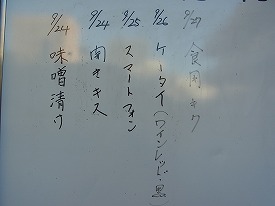 9/24 味噌漬け
9/24
9/25 スマートフォン
9/26 ケータイ(ワインレッド・黒)
9/27 食用キク